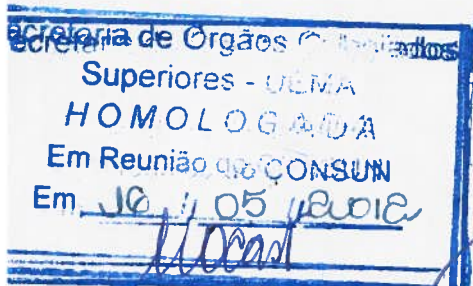 Secretaria de Órgãos Colegiados
Superiores - UEMA
HOMOLOGADA
Em Reunião do CONSUN
Em 16 / 05 / 2012